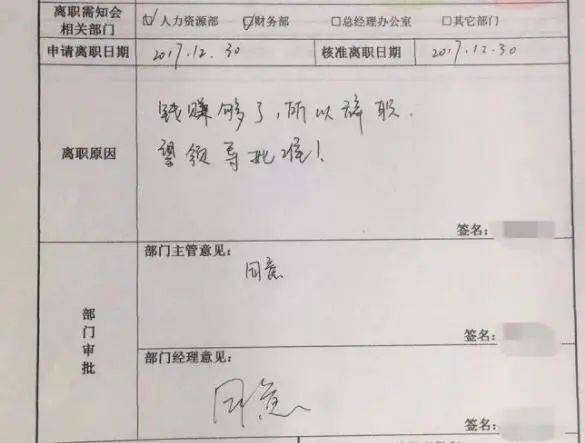 离职需知会 ☑人力资源部 ☑财务部 □总经理办公室 □其它部门
相关部门
申请离职日期 2017.12.30 核准离职日期 2017.12.30
离职原因
钱赚够了,所以辞职.
望领导批准!
签名:
部门审批
部门主管意见:
同意
签名:
部门经理意见:
同意
签名: